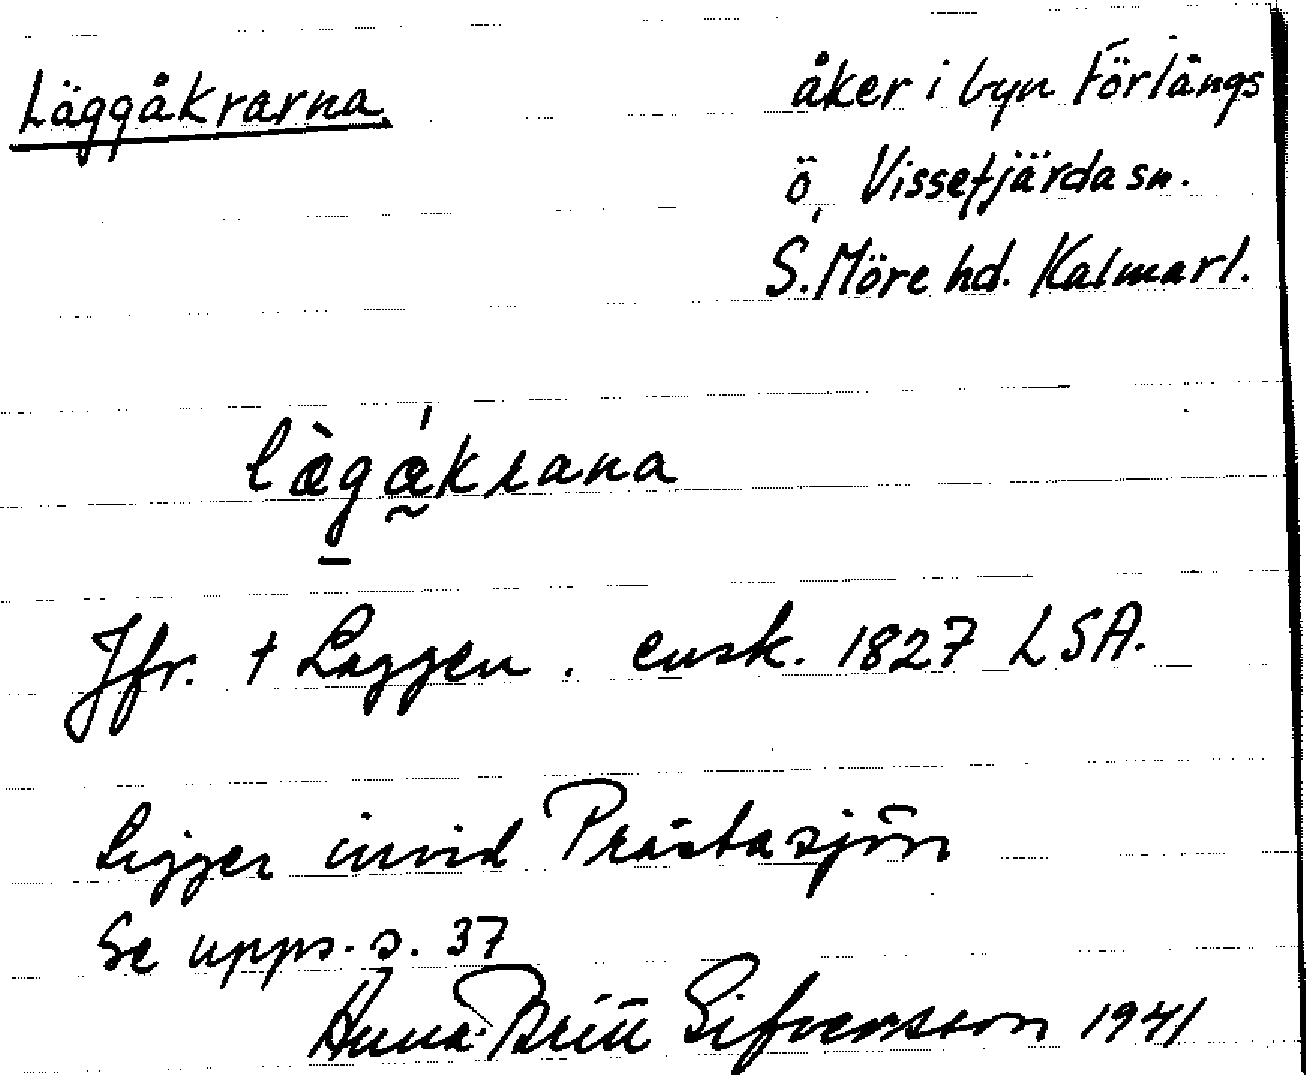 Läggåkrarna
åker i byn Förlångs
ö, Vissefjärda sn.
S. Möre hd. Kalmar l.
læ̀gǻkrana
Jfr. † Laggen. ensk. 1827 LSA.
Ligger invid Prästasjön
Se upps. s. 37
Anna-Britt Sifversson 1941